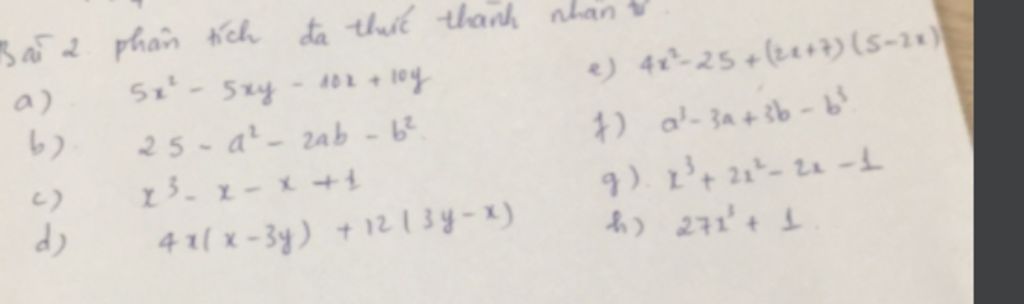 Bài 2 phân tích đa thức thành nhân tử
a) 5x² - 5xy - 10x + 10y
b) 25 - a² - 2ab - b²
c) x³ - x - x + 1
d) 4x(x - 3y) + 12(3y - x)
e) 4x² - 25 + (2x + 7)(5 - 2x)
f) a³ - 3a + 3b - b³
g) x³ + 2x² - 2x - 1
h) 27x³ + 1